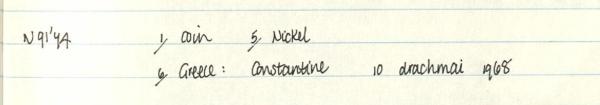 N91'4A 1, coin 5, Nickel
6, Greece: Constantine 10 drachmai 1968